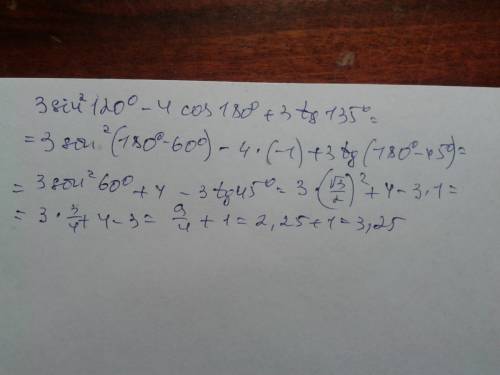 3 sin² 120° - 4 cos 180° + 3 tg 135° =
= 3 sin² (180° - 60°) - 4 · (-1) + 3 tg (180° - 45°) =
= 3 sin² 60° + 4 - 3 tg 45° = 3 · (√3/2)² + 4 - 3 · 1 =
= 3 · 3/4 + 4 - 3 = 9/4 + 1 = 2,25 + 1 = 3,25